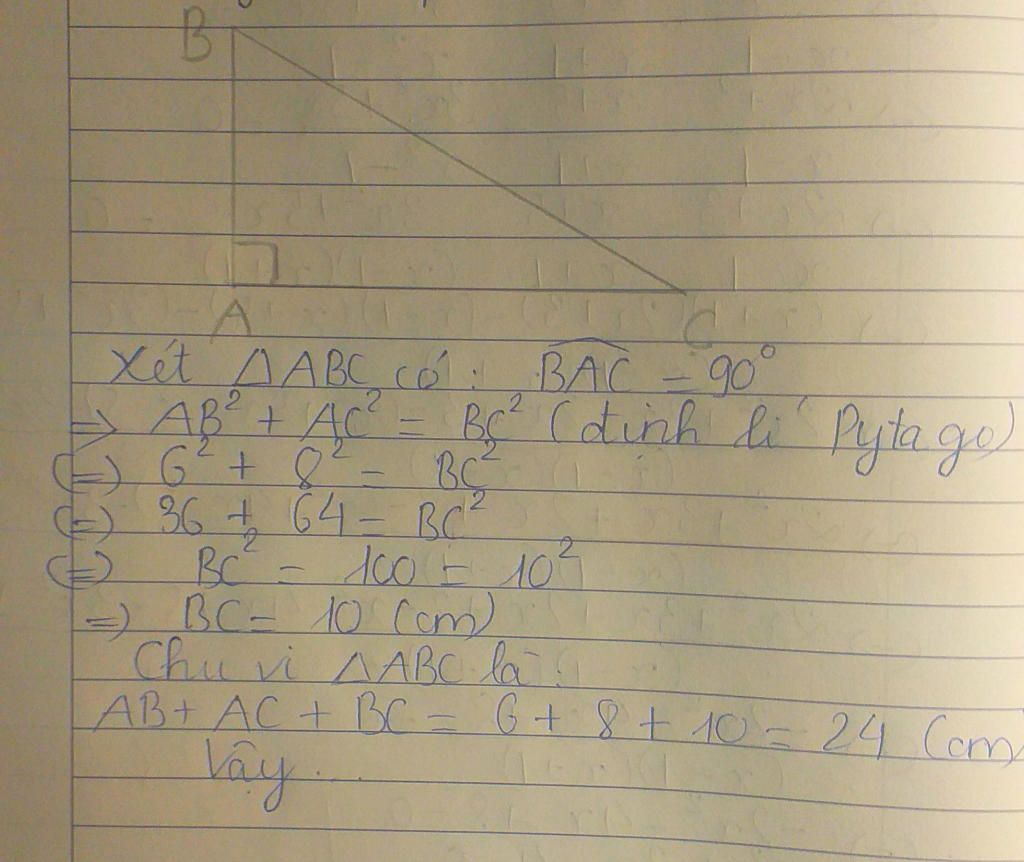 B
A
C
Xét ΔABC có: \widehat{BAC} = 90°
=> AB² + AC² = BC² (định lí Pytago)
(=) 6² + 8² = BC²
(=) 36 + 64 = BC²
(=) BC² = 100 = 10²
=) BC = 10 (cm)
Chu vi ΔABC là:
AB + AC + BC = 6 + 8 + 10 = 24 (cm)
Vậy ...